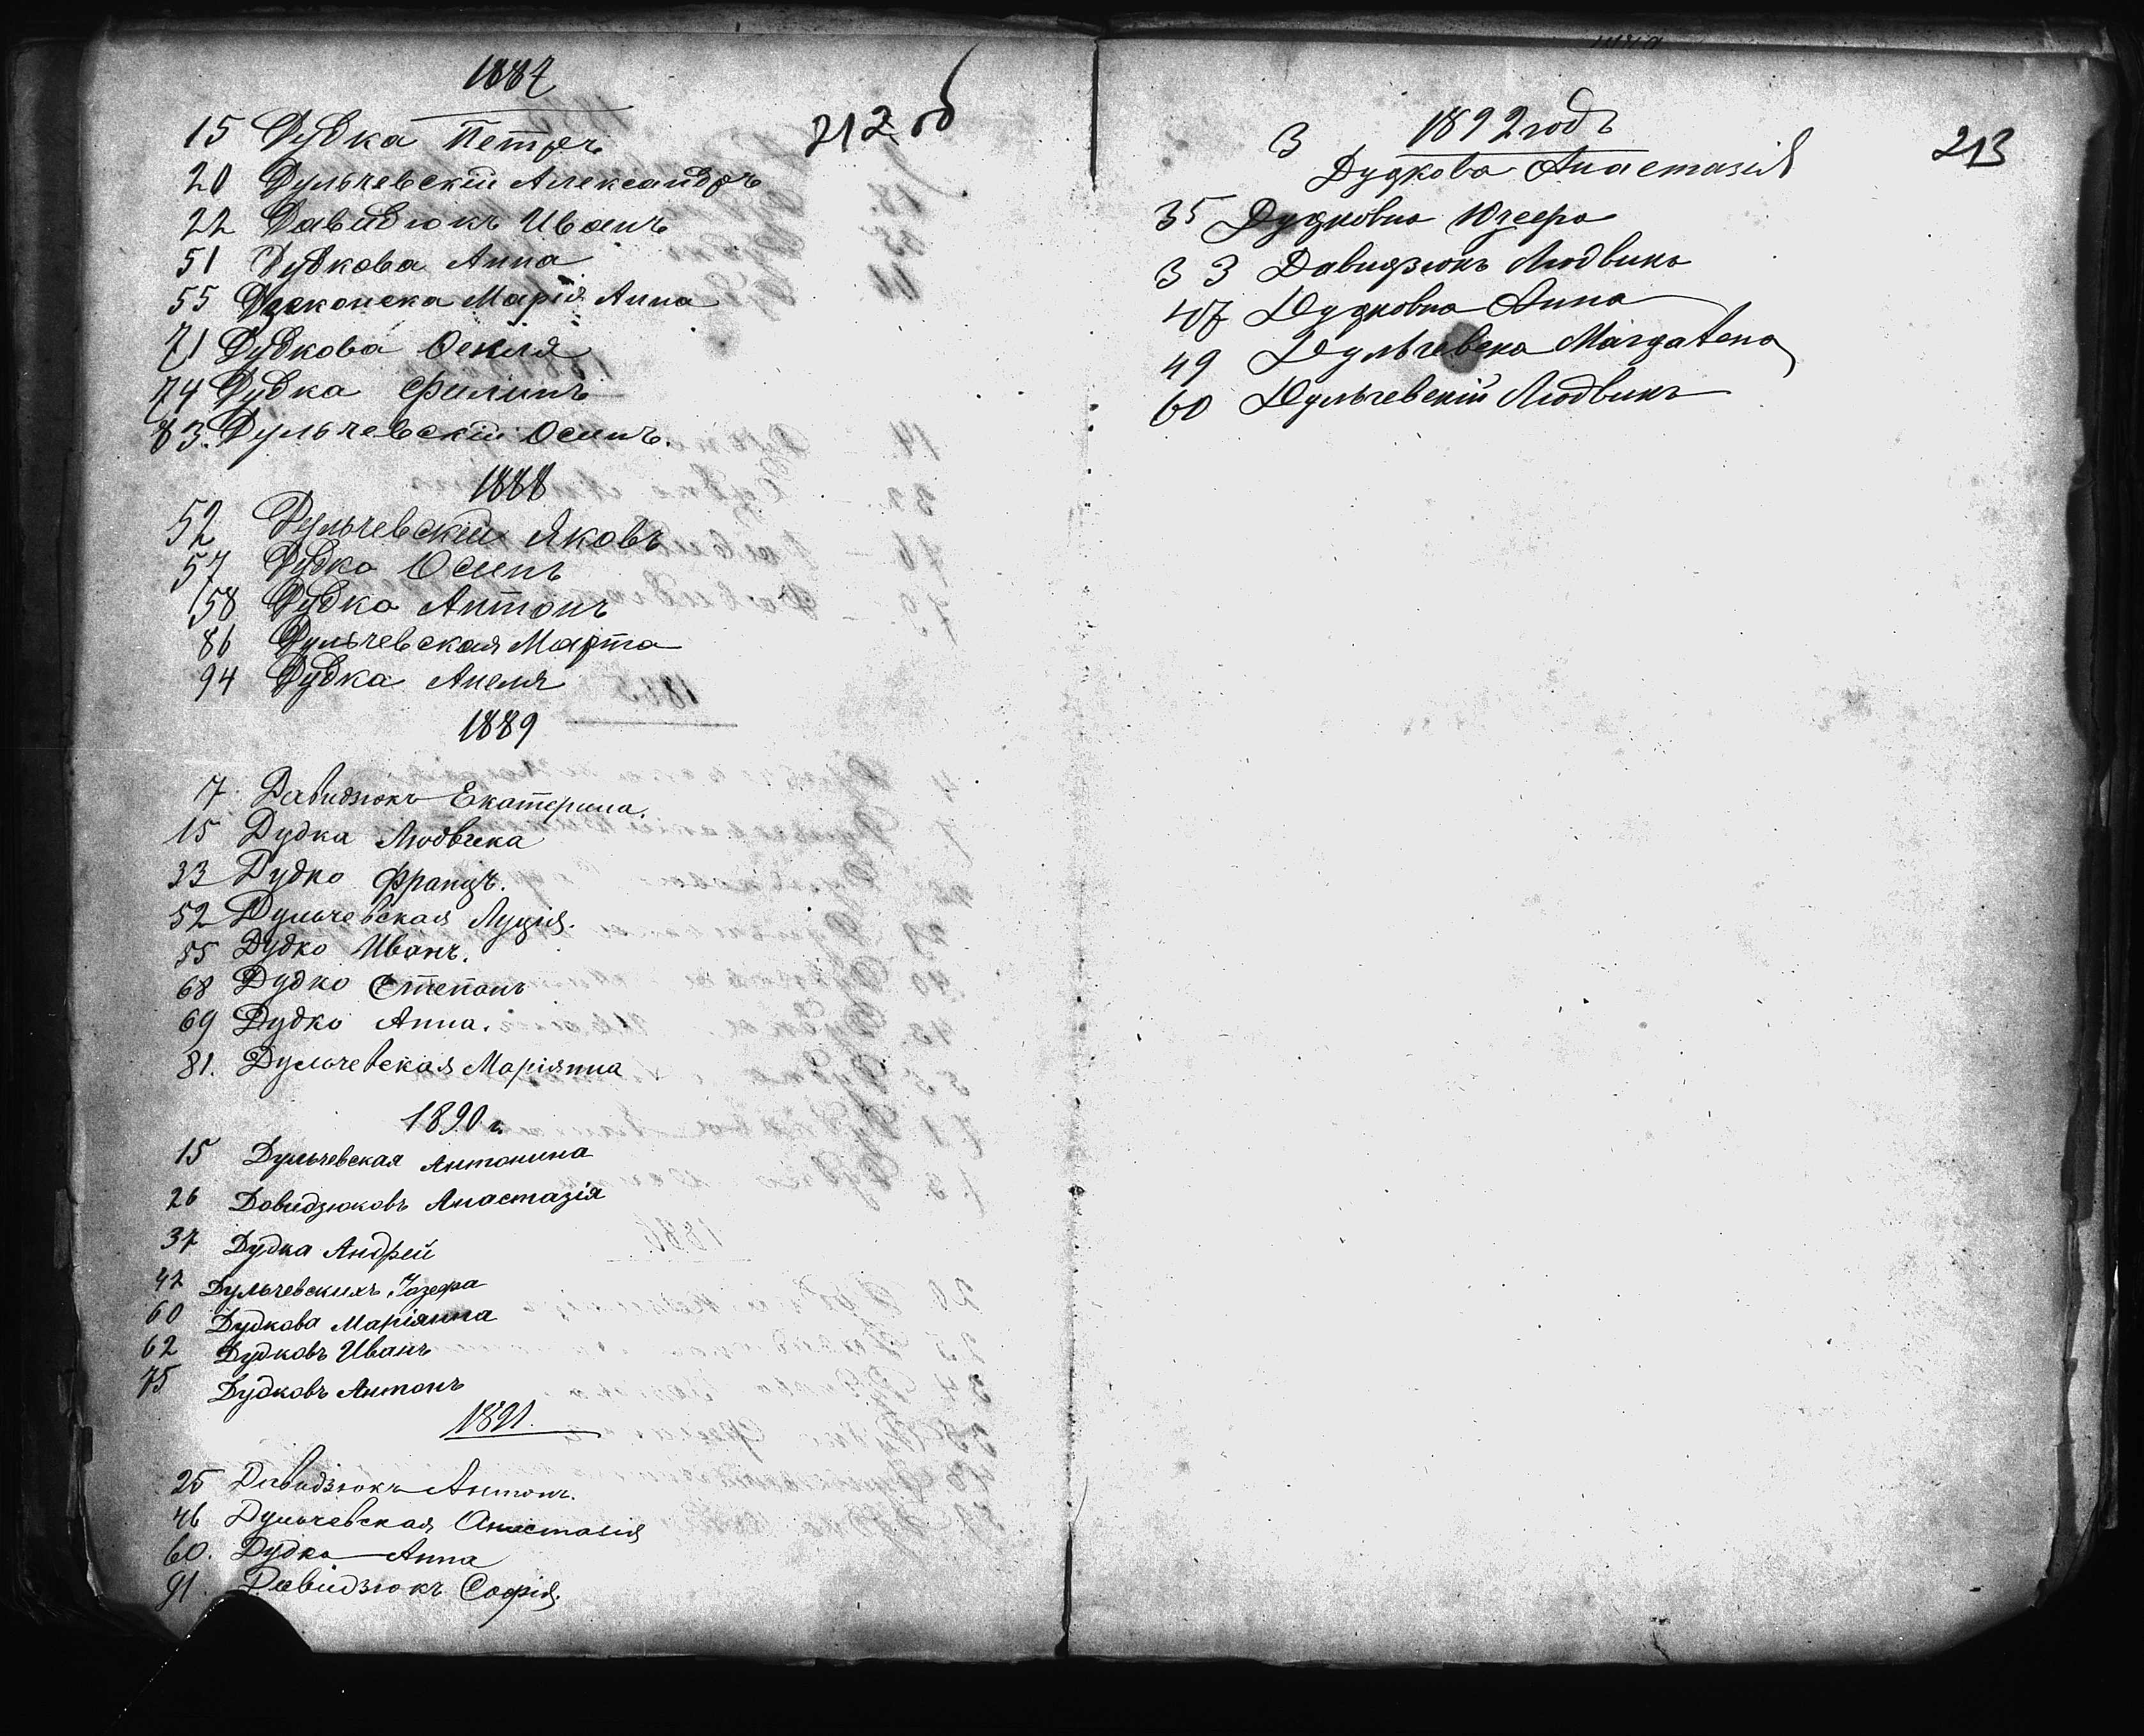 1887
212 об
15 Дудка Петръ
20 Дульчевскій Александръ
22 Давидюкъ Иванъ
51 Дудкова Анна
55 Марія Анна
71 Дудкова Текля
74 Дудка Филипъ
83. Дульчевскій Осипъ.
1888
52 Дульчевскій Яковъ
57 Дудка Осипъ
58 Дудка Антонъ
86 Дульчевская Марта
94 Дудка Анеля
1889
7. Давидзюкъ Екатерина.
15 Дудка Людвика
33 Дудко Францъ.
52 Дульчевская Луція.
55 Дудко Иванъ.
68 Дудко Степанъ
69 Дудко Анна.
81. Дульчевская Маріянна
1890 г.
15 Дульчевская Антонина
26 Довидзюковъ Анастазія
37 Дудка Андрей
42 Дульчевскихъ Іозефа
60 Дудкова Маріянна
62 Дудковъ Иванъ
75 Дудковъ Антонъ
1891.
25 Давидзюкъ Антонъ.
46 Дульчевская Анастазія
60. Дудка Анна
91. Давидзюкъ Софія.
213
1892 годъ
3 Дудкова Анастазія
35 Дудковна Юзефа
33 Давидзюкъ Людвикъ
47 Дудковна Анна
49 Дульчевска
60 Дульчевскій Людвикъ